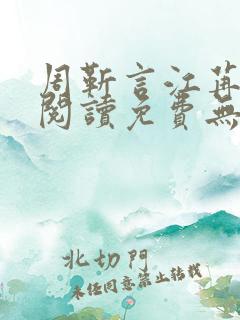 周靳言江苒
閱讀免費無
北切門
未經同意禁止轉載